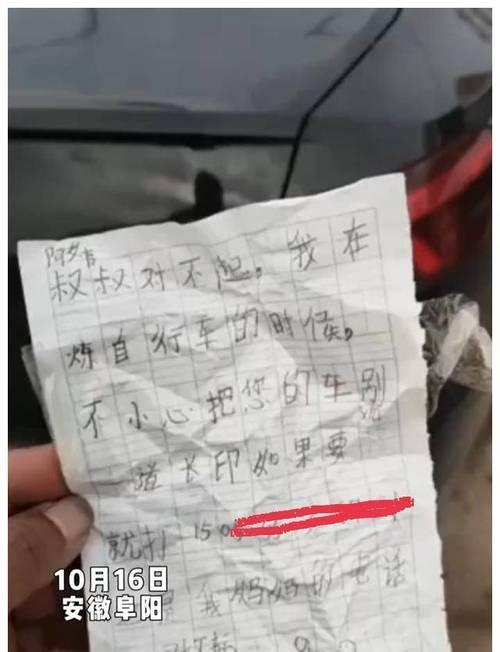 叔叔对不起。我在
炼自行车的时候。
不小心把您的车别
一道长印如果要
就打 150
我妈妈的电话
10月16日
安徽阜阳